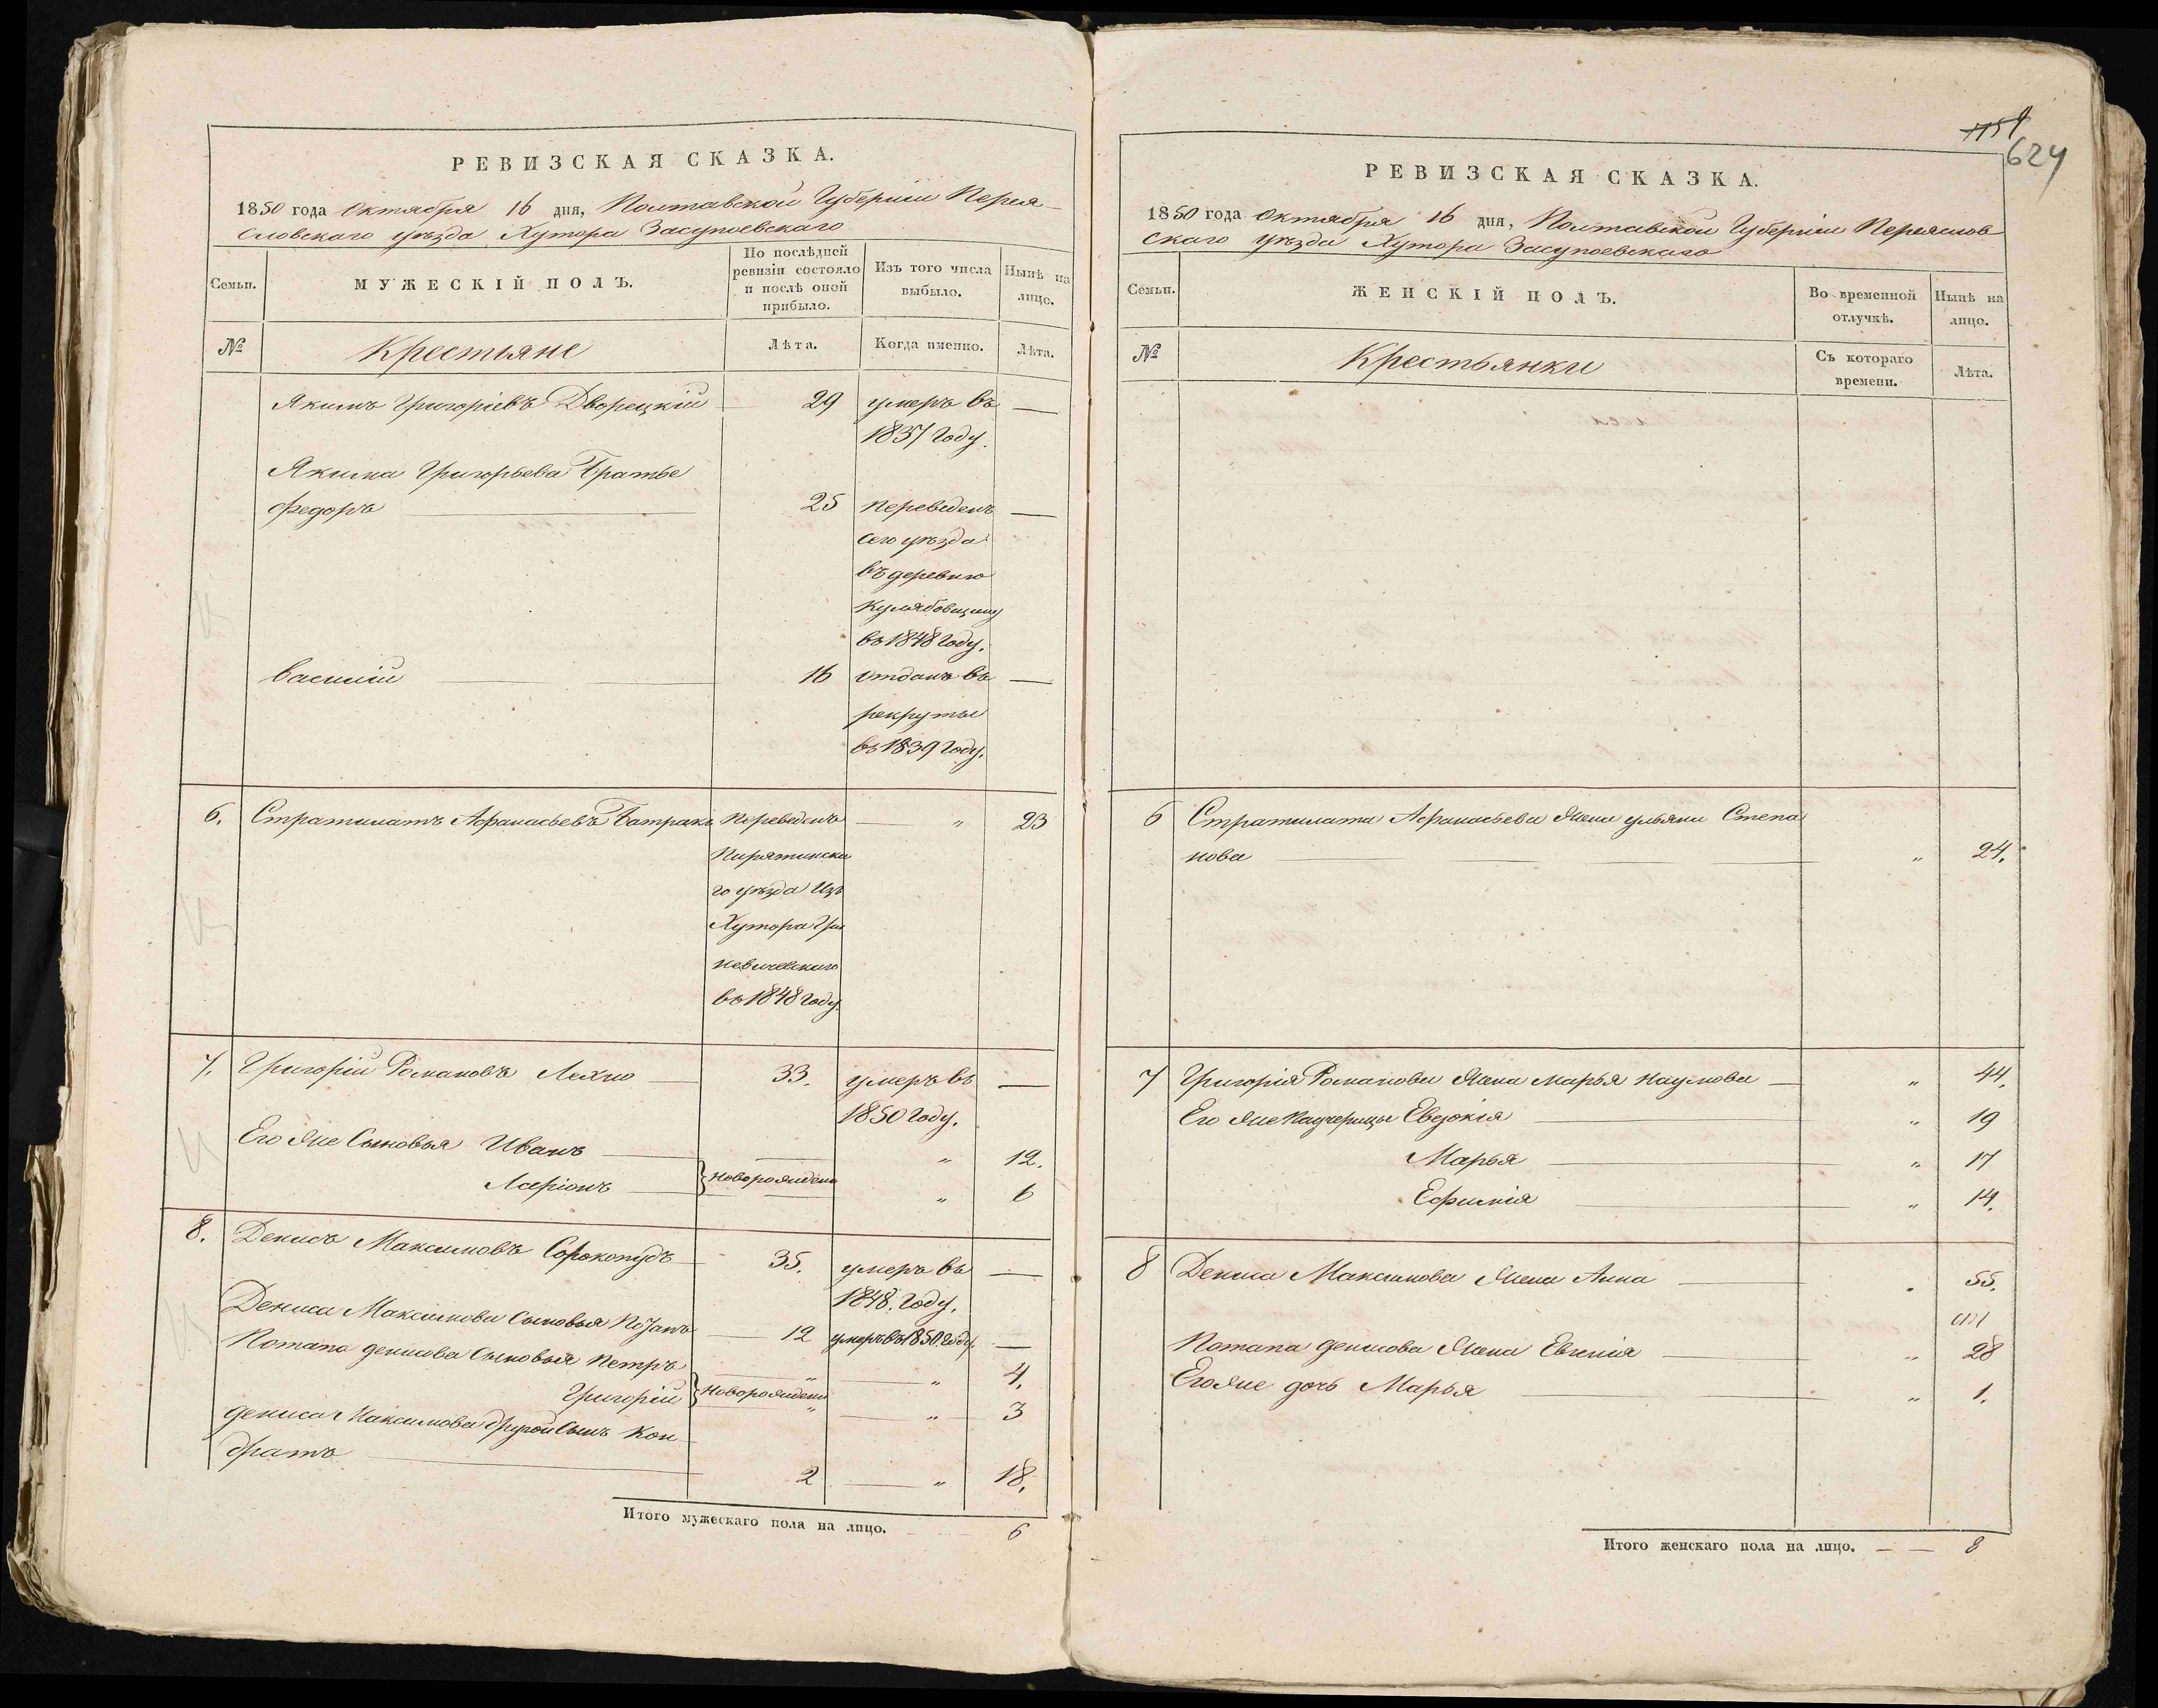 РЕВИЗСКАЯ СКАЗКА.
1850 года Октября 16 дня, Полтавской Губерніи Перея-
словскаго уѣзда Хутора Засупоевскаго
Семьи.
МУЖЕСКІЙ ПОЛЪ.
По послѣдней ревизіи состояло и послѣ оной прибыло.
Изъ того числа выбыло.
Нынѣ на лицо.
№
Крестьяне
Лѣта.
Когда именно.
Лѣта.
Якимъ Григоріевъ Дворецкій 29 умеръ въ —
1837 году.
Якима Григорьева братье
Федоръ — 25 переведенъ —
сего уѣзда
въ деревню
Кулябовщину
въ 1848 году.
Василій — 16 отданъ въ —
рекруты
въ 1839 году.
6. Стратилатъ Афанасьевъ Батракъ переведенъ — „ 23
Пирятинска
го уѣзда изъ
Хутора Гри
невичевскаго
въ 1848 году.
7. Григорій Романовъ Лехно — 33. умеръ въ —
1850 году.
Его же Сыновья Иванъ — „ 12.
новорожденн
— „ 6
8. Денисъ Максимовъ Сорокопудъ — 35. умеръ въ —
1848. году.
Дениса Максимова сыновья Потапъ — 12 умеръ въ 1850 году. —
Потапа денисова Сыновья Петръ „ — „ 4.
Григорій новорожденн „ „ 3
дениса Максимова другой сынъ Кон
дратъ — 2 — „ 18.
Итого мужескаго пола на лицо. — — 6
624
РЕВИЗСКАЯ СКАЗКА.
1850 года Октября 16 дня, Полтавской Губерніи Переяслов
скаго уѣзда Хутора Засупоевскаго
Семьи.
ЖЕНСКІЙ ПОЛЪ.
Во временной отлучкѣ.
Нынѣ на лицо.
№
Крестьянки
Съ котораго времени.
Лѣта.
6 Стратилата Афанасьева жена ульяна Степа
нова — — „ 24.
7 Григорія Романова жена марья наумова — „ 44.
Его же падчерицы Евдокія — „ 19
Марья — „ 17
Ефимія — „ 14.
8 Дениса Максимова жена Анна — „ 55.
Потапа денисова жена Евгенія — „ 28
Его же дочь Марья — „ 1.
Итого женскаго пола на лицо. — — 8